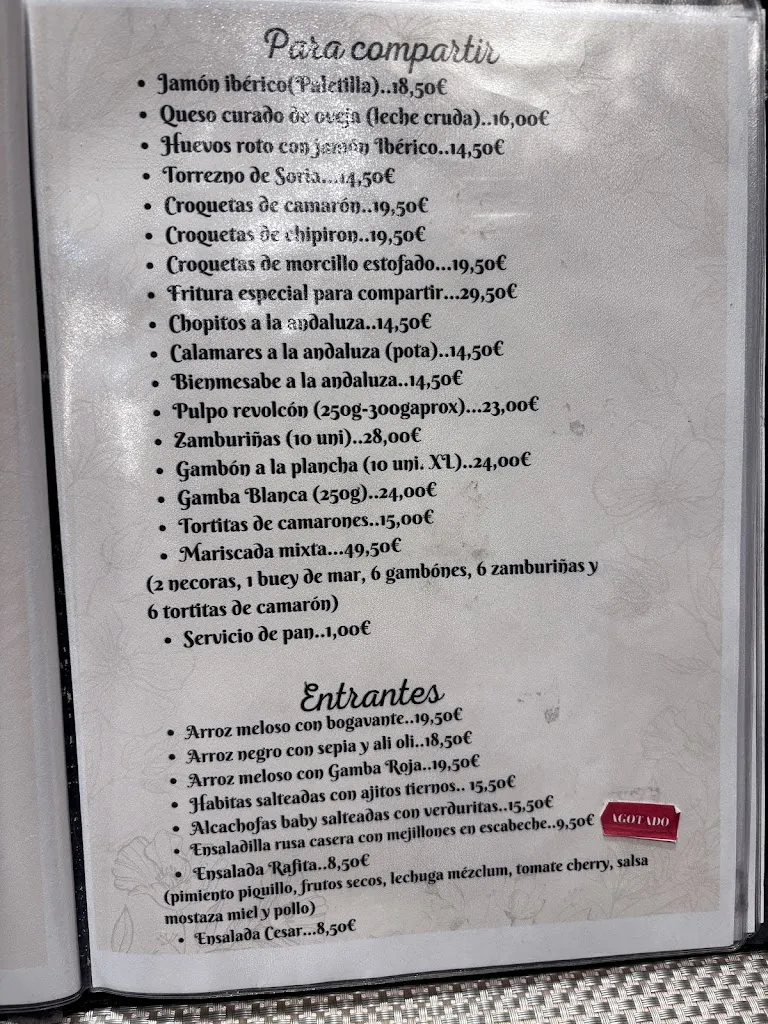 Para compartir
• Jamón ibérico(Paletilla)..18,50€
• Queso curado de oveja (leche cruda)..16,00€
• Huevos roto con jamón Ibérico..14,50€
• Torrezno de Soria...14,50€
• Croquetas de camarón..19,50€
• Croquetas de chipiron..19,50€
• Croquetas de morcillo estofado...19,50€
• Fritura especial para compartir...29,50€
• Chopitos a la andaluza..14,50€
• Calamares a la andaluza (pota)..14,50€
• Bienmesabe a la andaluza..14,50€
• Pulpo revolcón (250g-300gaprox)...23,00€
• Zamburiñas (10 uni)..28,00€
• Gambón a la plancha (10 uni. XL)..24,00€
• Gamba Blanca (250g)..24,00€
• Tortitas de camarones..15,00€
• Mariscada mixta...49,50€
(2 necoras, 1 buey de mar, 6 gambónes, 6 zamburiñas y
6 tortitas de camarón)
• Servicio de pan..1,00€
Entrantes
• Arroz meloso con bogavante..19,50€
• Arroz negro con sepia y ali oli..18,50€
• Arroz meloso con Gamba Roja..19,50€
• Habitas salteadas con ajitos tiernos.. 15,50€
• Alcachofas baby salteadas con verduritas..15,50€
• Ensaladilla rusa casera con mejillones en escabeche..9,50€ AGOTADO
• Ensalada Rafita..8,50€
(pimiento piquillo, frutos secos, lechuga mézclum, tomate cherry, salsa
mostaza miel y pollo)
• Ensalada Cesar...8,50€